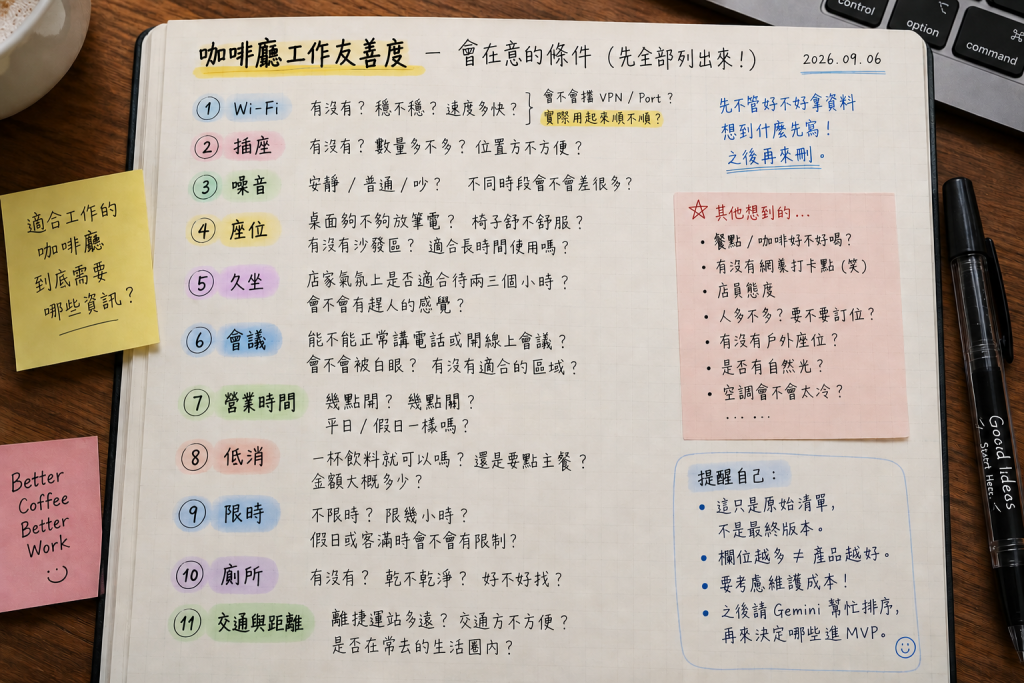 咖啡廳工作友善度 — 會在意的條件 (先全部列出來!)
2026.09.06
① Wi-Fi 有沒有? 穩不穩? 速度多快?
會不會擋 VPN / Port ?
實際用起來順不順?
② 插座 有沒有? 數量多不多? 位置方不方便?
③ 噪音 安靜 / 普通 / 吵? 不同時段會不會差很多?
④ 座位 桌面夠不夠放筆電? 椅子舒不舒服?
有沒有沙發區? 適合長時間使用嗎?
⑤ 久坐 店家氣氛上是否適合待兩三個小時?
會不會有趕人的感覺?
⑥ 會議 能不能正常講電話或開線上會議?
會不會被白眼? 有沒有適合的區域?
⑦ 營業時間 幾點開? 幾點關?
平日 / 假日一樣嗎?
⑧ 低消 一杯飲料就可以嗎? 還是要點主餐?
金額大概多少?
⑨ 限時 不限時? 限幾小時?
假日或客滿時會不會有限制?
⑩ 廁所 有沒有? 乾不乾淨? 好不好找?
⑪ 交通與距離 離捷運站多遠? 交通方不方便?
是否在常去的生活圈內?
先不管好不好拿資料
想到什麼先寫!
之後再來刪。
☆ 其他想到的...
• 餐點 / 咖啡好不好喝?
• 有沒有網美打卡點 (笑)
• 店員態度
• 人多不多? 要不要訂位?
• 有沒有戶外座位?
• 是否有自然光?
• 空調會不會太冷?
... ...
提醒自己:
• 這只是原始清單,
不是最終版本。
• 欄位越多 ≠ 產品越好。
• 要考慮維護成本!
• 之後請 Gemini 幫忙排序,
再來決定哪些進 MVP。
適合工作的
咖啡廳
到底需要
哪些資訊?
Better
Coffee
Better
Work
control
option
command
Gooid Iideas
Start Here.